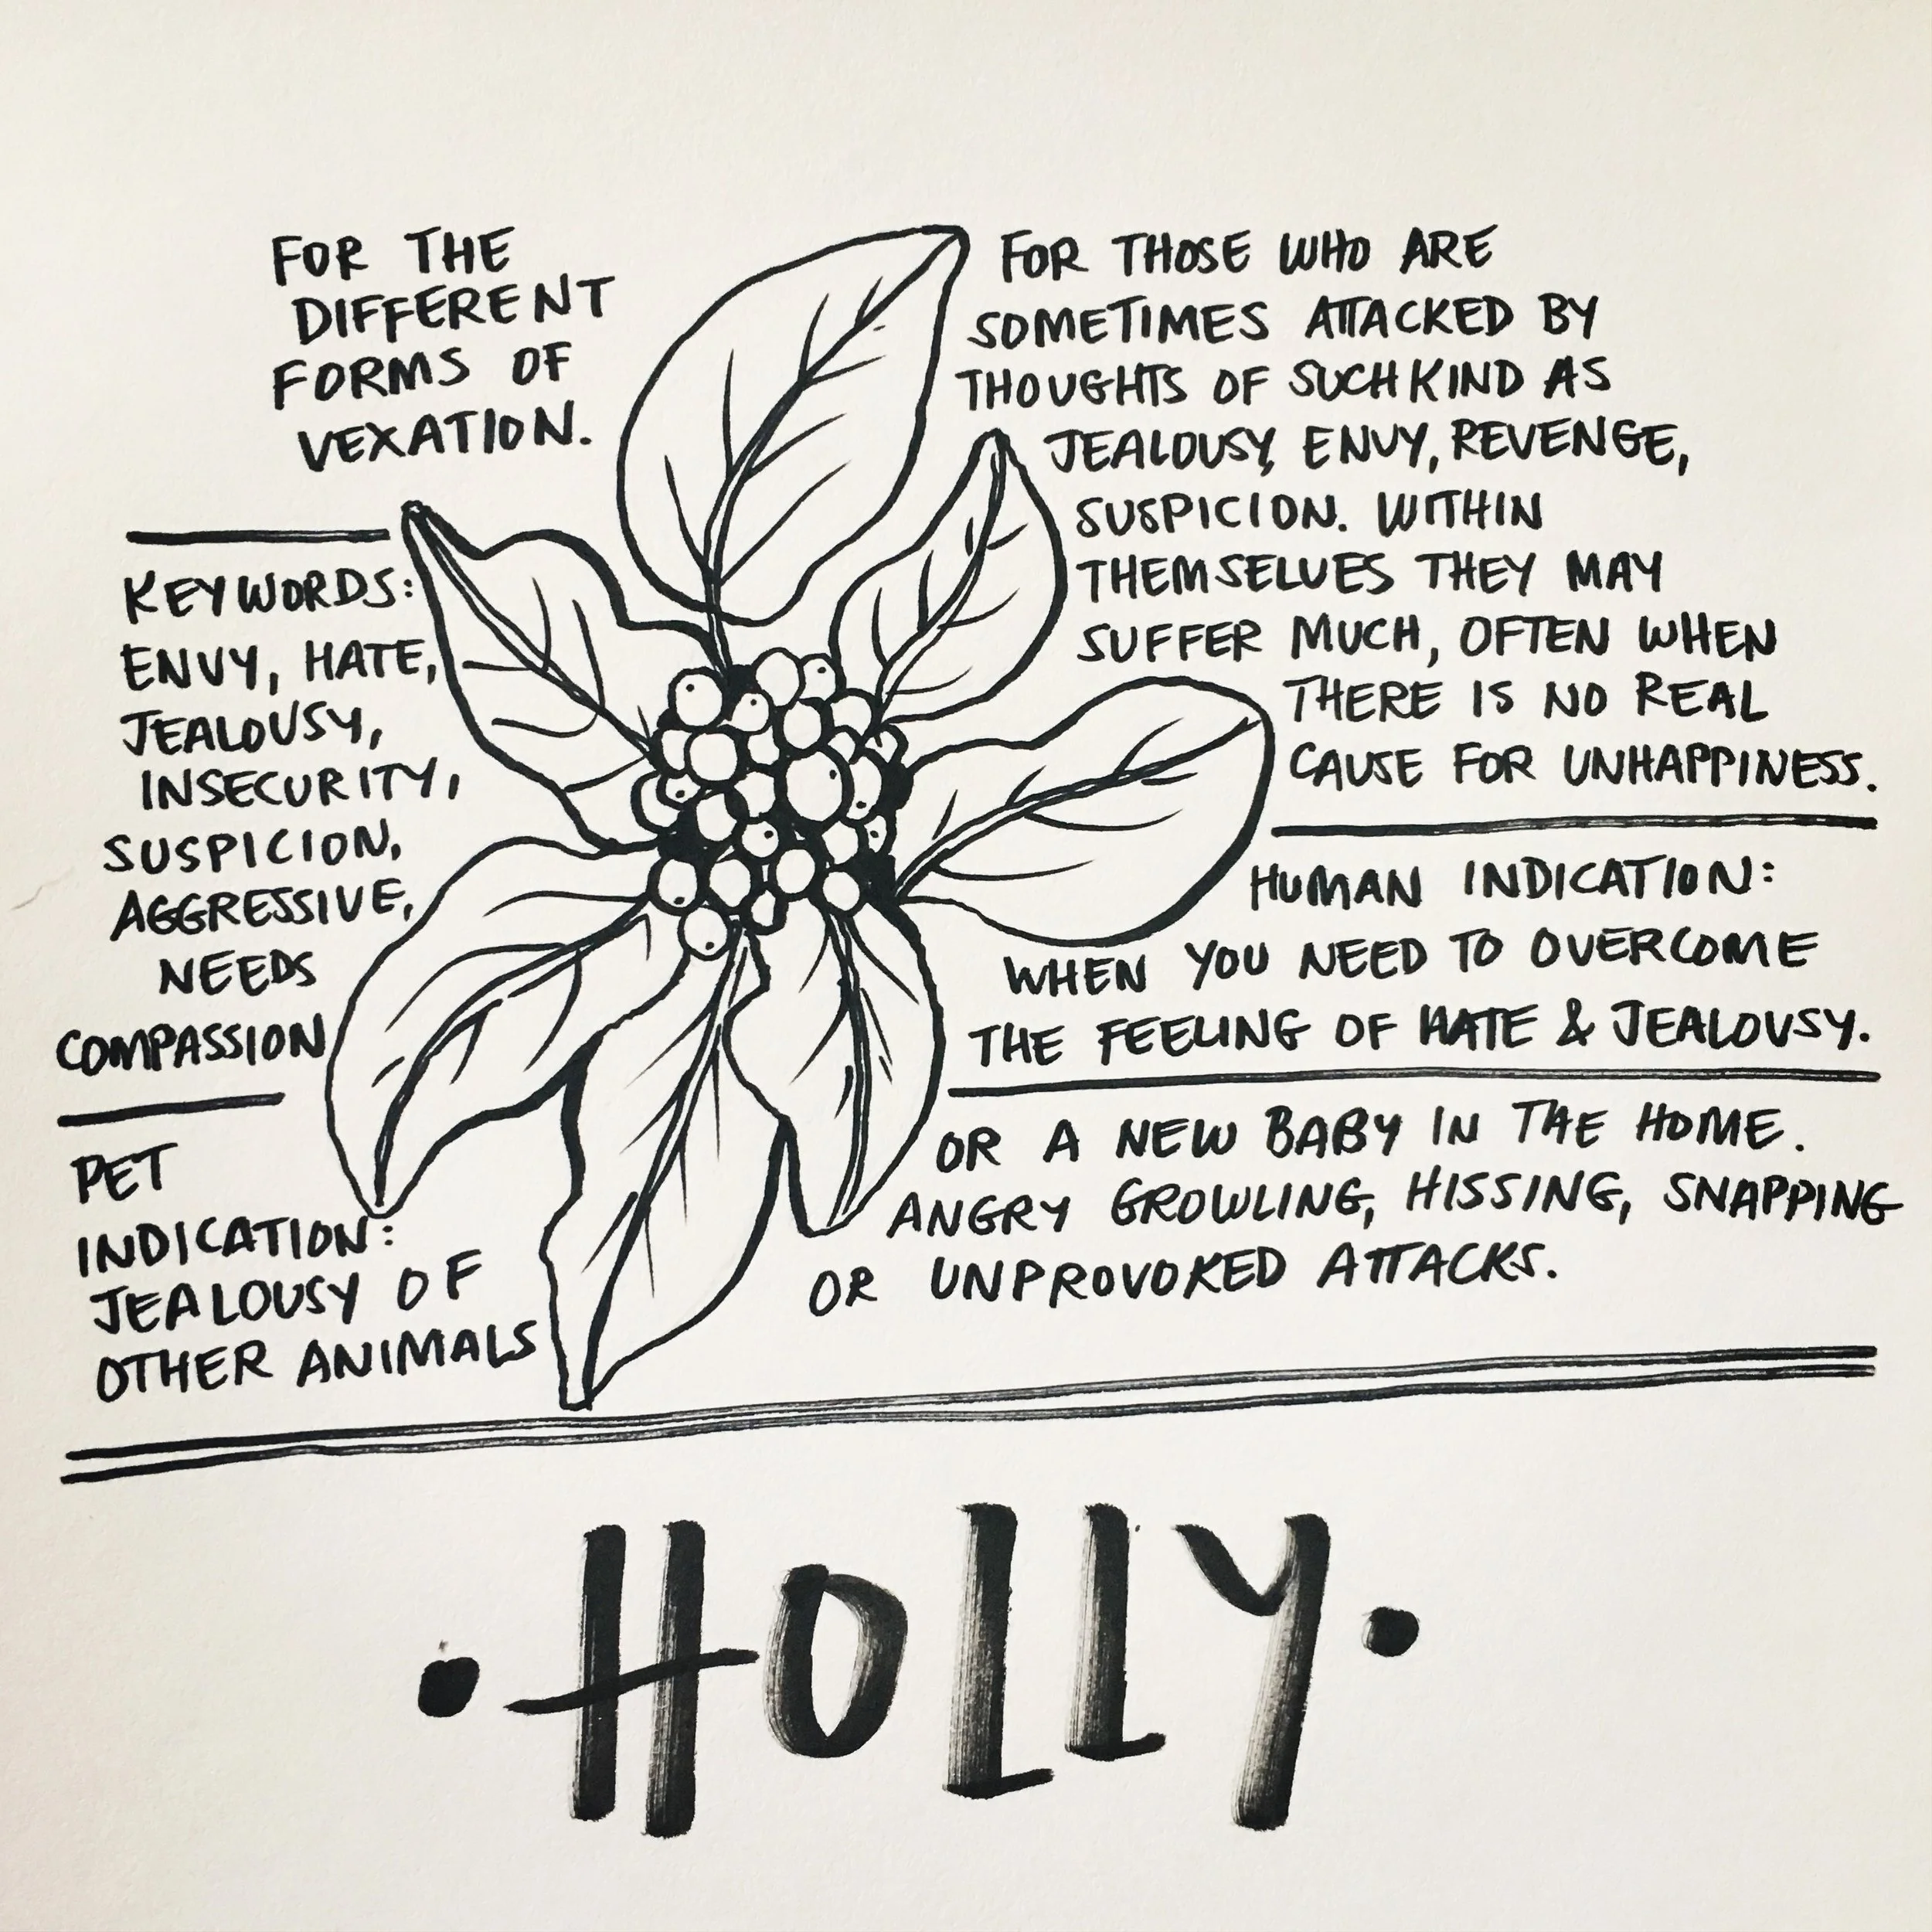 FOR THE
DIFFERENT
FORMS OF
VEXATION.
FOR THOSE WHO ARE
SOMETIMES ATTACKED BY
THOUGHTS OF SUCH KIND AS
JEALOUSY, ENVY, REVENGE,
SUSPICION. WITHIN
THEMSELVES THEY MAY
SUFFER MUCH, OFTEN WHEN
THERE IS NO REAL
CAUSE FOR UNHAPPINESS.
KEYWORDS:
ENVY, HATE,
JEALOUSY,
INSECURITY,
SUSPICION,
AGGRESSIVE,
NEEDS
COMPASSION
HUMAN INDICATION:
WHEN YOU NEED TO OVERCOME
THE FEELING OF HATE & JEALOUSY.
PET
INDICATION:
JEALOUSY OF
OTHER ANIMALS
OR A NEW BABY IN THE HOME.
ANGRY GROWLING, HISSING, SNAPPING
OR UNPROVOKED ATTACKS.
• HOLLY •